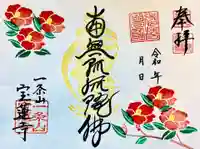 奉拝
令和 年
月 日
南無阿弥陀佛
一条山
宝蓮寺